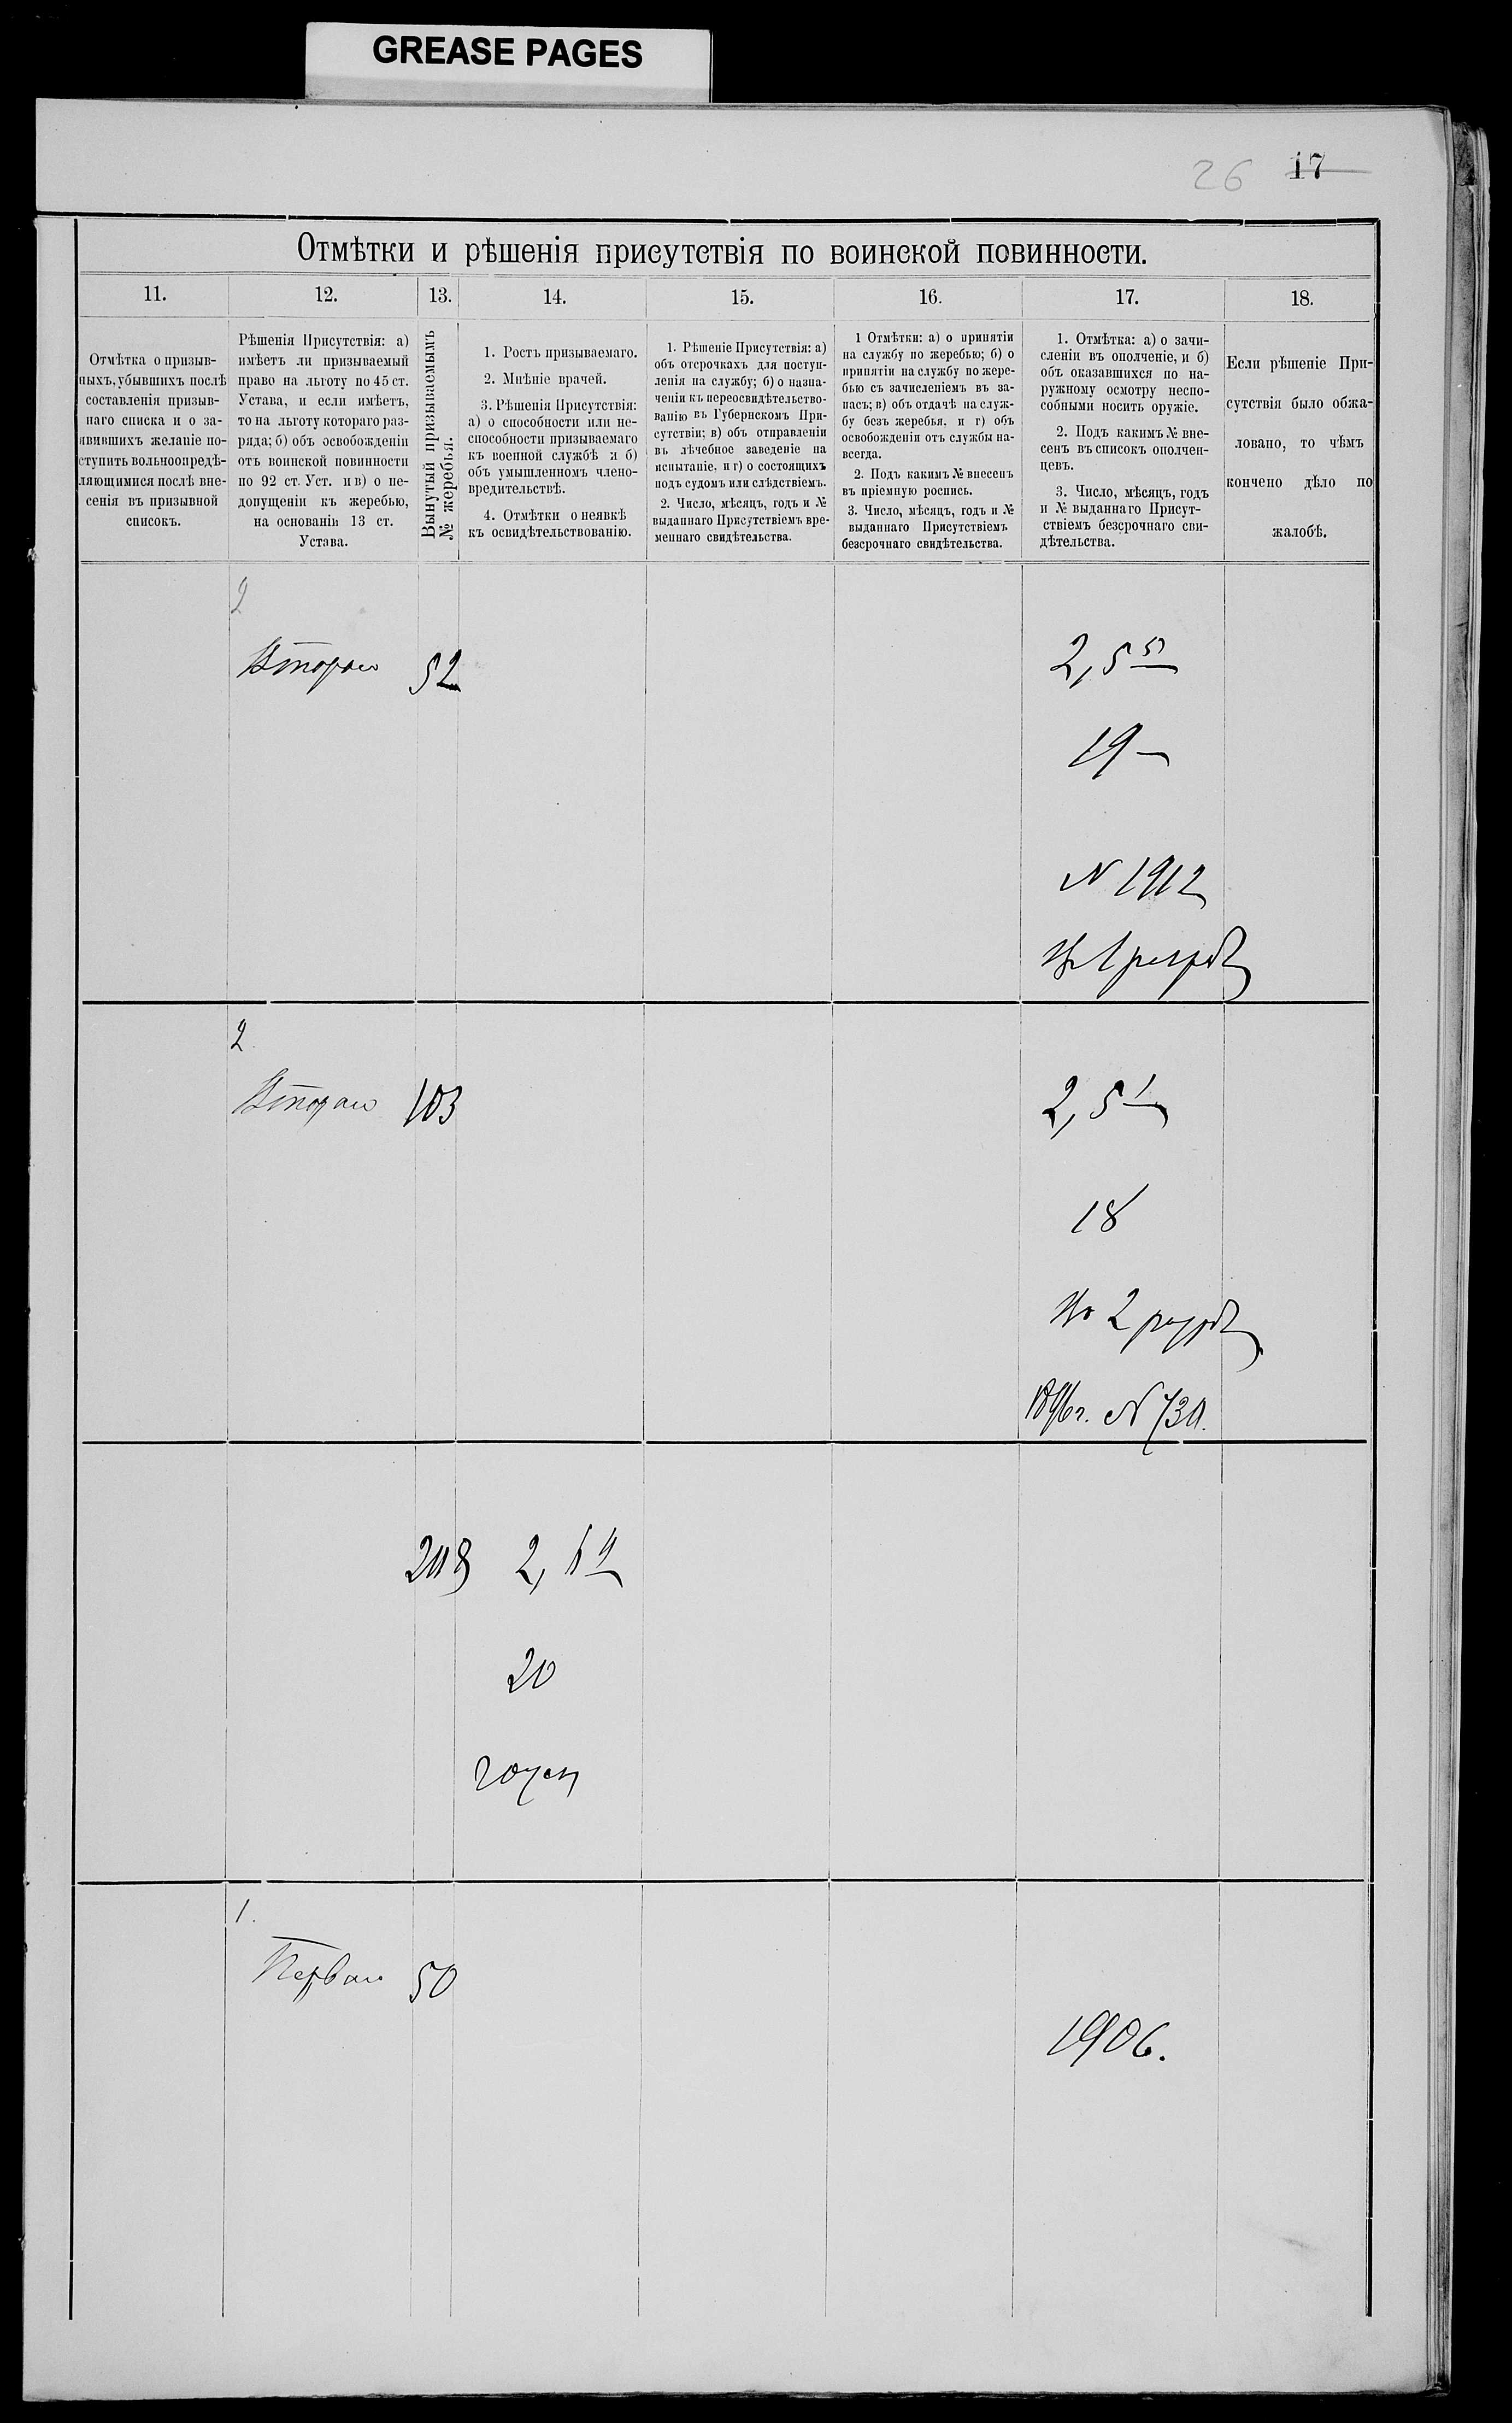 GREASE PAGES
26 17
Отмѣтки и рѣшенія присутствія по воинской повинности.
11. 12. 13. 14. 15. 16. 17. 18.
Отмѣтка о призыв-
ныхъ, убывшихъ послѣ
составленія призыв-
наго списка и о за-
явившихъ желаніе по-
ступить вольноопредѣ-
ляющимися послѣ вне-
сенія въ призывной
списокъ.
Рѣшенія Присутствія: а)
имѣетъ ли призываемый
право на льготу по 45 ст.
Устава, и если имѣетъ,
то на льготу котораго раз-
ряда; б) объ освобожденіи
отъ воинской повинности
по 92 ст. Уст. и в) о не-
допущеніи къ жеребью,
на основаніи 13 ст.
Устава.
Вынутый призываемымъ
№ жеребья.
1. Ростъ призываемаго.
2. Мнѣніе врачей.
3. Рѣшенія Присутствія:
а) о способности или не-
способности призываемаго
къ военной службѣ и б)
объ умышленномъ члено-
вредительствѣ.
4. Отмѣтки о неявкѣ
къ освидѣтельствованію.
1. Рѣшеніе Присутствія: а)
объ отсрочкахъ для поступ-
ленія на службу; б) о назна-
ченіи къ переосвидѣтельство-
ванію въ Губернскомъ При-
сутствіи; в) объ отправленіи
въ лѣчебное заведеніе на
испытаніе, и г) о состоящихъ
подъ судомъ или слѣдствіемъ.
2. Число, мѣсяцъ, годъ и №
выданнаго Присутствіемъ вре-
меннаго свидѣтельства.
1 Отмѣтки: а) о принятіи
на службу по жеребью; б) о
принятіи на службу по жере-
бью съ зачисленіемъ въ за-
пасъ; в) объ отдачѣ на служ-
бу безъ жеребья, и г) объ
освобожденіи отъ службы на-
всегда.
2. Подъ какимъ № внесенъ
въ пріемную роспись.
3. Число, мѣсяцъ, годъ и №
выданнаго Присутствіемъ
безсрочнаго свидѣтельства.
1. Отмѣтка: а) о зачи-
сленіи въ ополченіе, и б)
объ оказавшихся по на-
ружному осмотру неспо-
собными носить оружіе.
2. Подъ какимъ № вне-
сенъ въ списокъ ополчен-
цевъ.
3. Число, мѣсяцъ, годъ
и № выданнаго Присут-
ствіемъ безсрочнаго сви-
дѣтельства.
Если рѣшеніе При-
сутствія было обжа-
ловано, то чѣмъ
кончено дѣло по
жалобѣ.
2
Вторая 52
2,5 5
19
N 1912
2
Вторая 103
2,5 1
18
Во 2 разрд
1896 г. N 730.
208 2,6 2
20
годен
1.
Первая 50
1906.